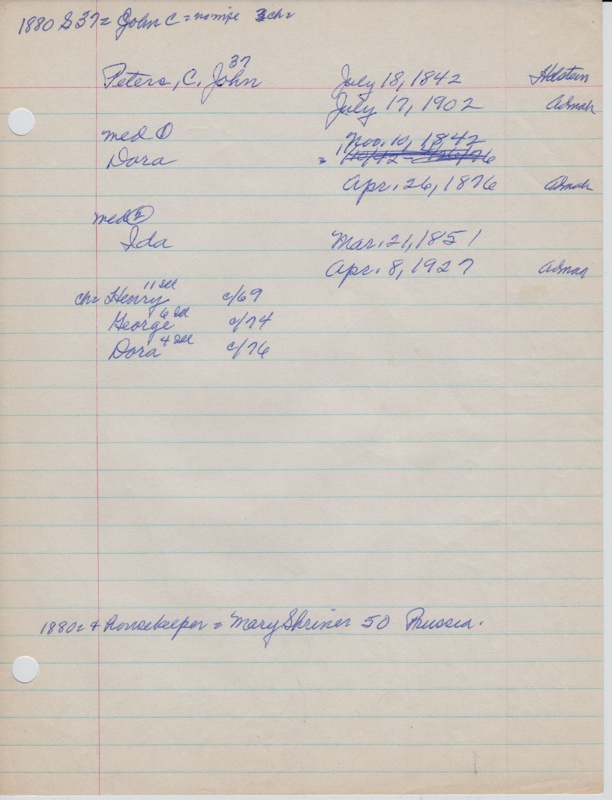 1880 S37= John C = no wife 3 chr
37
Peters, C. John July 18, 1842 Holstein
July 17, 1902 Admah
med ① Nov. 10, 1842
Dora =
Apr. 26, 1876 Admah
med ②
Ida Mar. 21, 1851
Apr. 8, 1927 Admah
ch= Henry 11 Ill c/69
George 6 Ill c/74
Dora 4 Ill c/76
1880= + Housekeeper = Mary Shriner 50 Prussia.